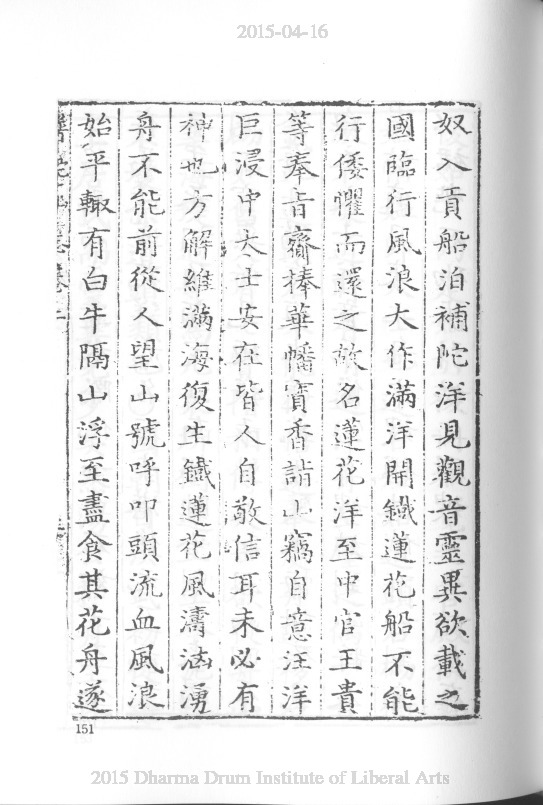 2015-04-16
奴入貢船泊補陀洋見觀音靈異欲載之
國臨行風浪大作滿洋開鐵蓮花船不能
行倭懼而還之故名蓮花洋至中官王貴
等奉旨齎捧華幡寶香詣山竊自意汪洋
巨浸中大士安在皆人自敬信耳未必有
神也方解維滿海復生鐵蓮花風濤洶湧
舟不能前從人望山號呼叩頭流血風浪
始平輙有白牛隔山浮至盡食其花舟遂
151
2015 Dharma Drum Institute of Liberal Arts